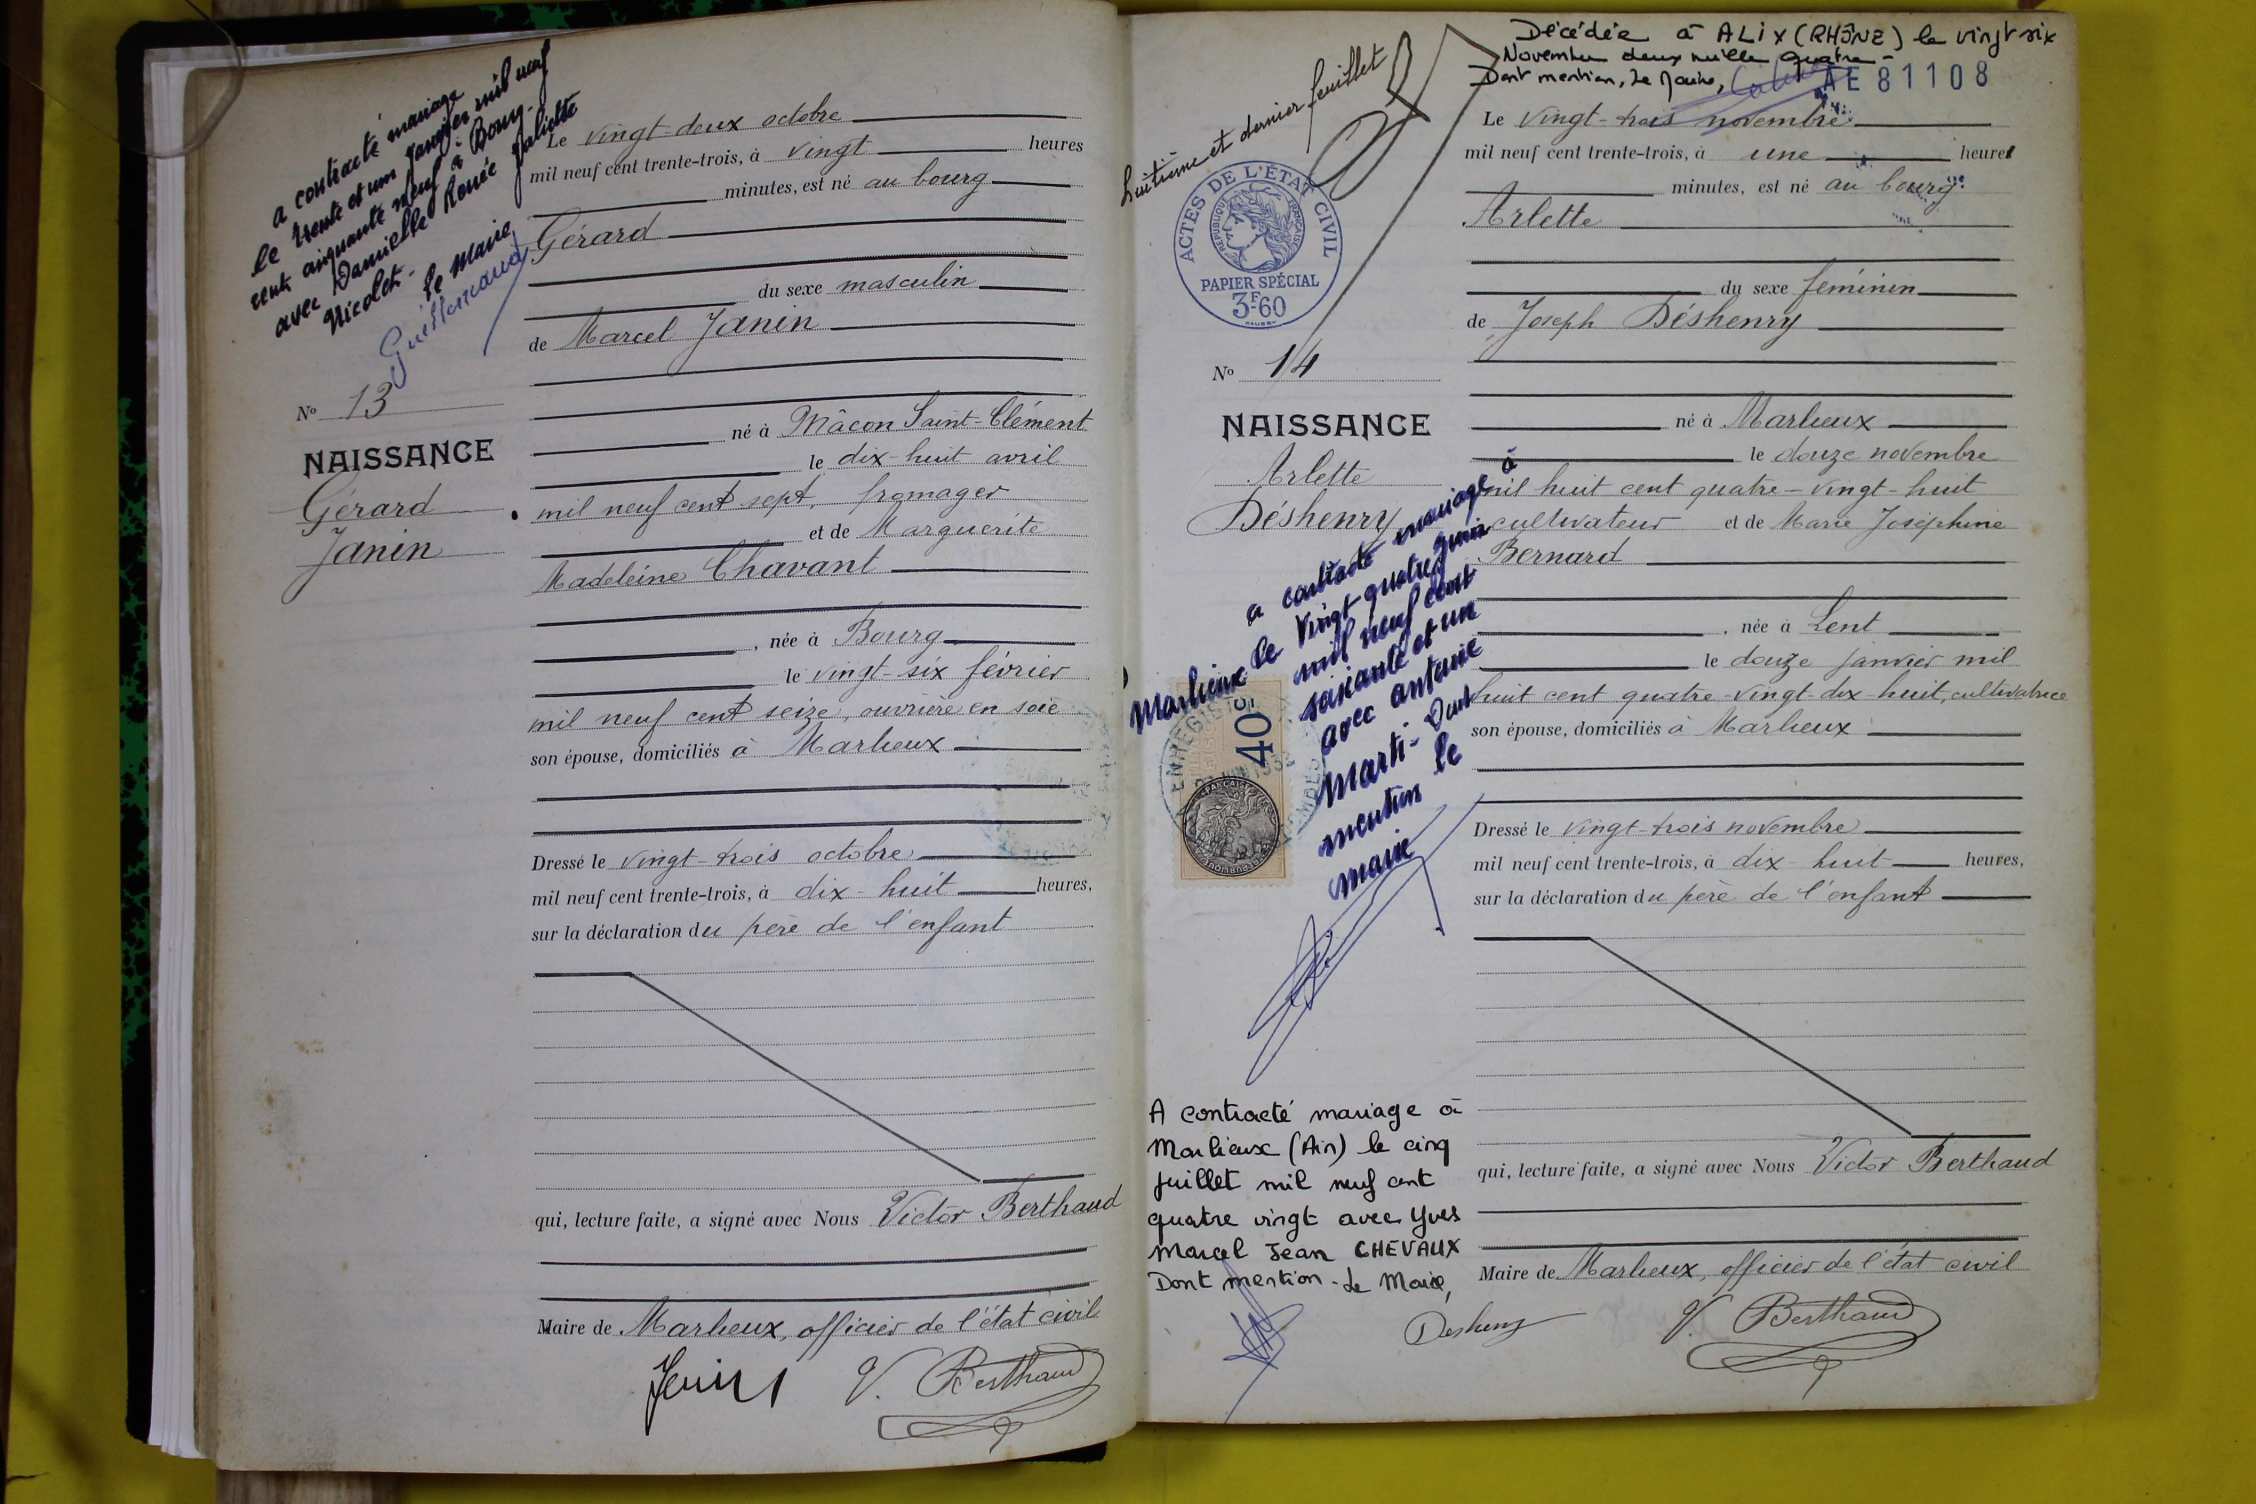 a contracté mariage
le trente et un janvier mil neuf
cent cinquante neuf à Bourg-
avec Danielle Renée Juliette
Nicolet-
le Maire
Le vingt-deux octobre
mil neuf cent trente-trois, à vingt heures
minutes, est né au bourg
Gérard
du sexe masculin
de Marcel Janin
né à Mâcon Saint-Clément
le dix-huit avril
mil neuf cent sept, fromager
et de Marguerite
Madeleine Chavant
, née à Bourg
le vingt-six février
mil neuf cent seize, ouvrière en soie
son épouse, domiciliés à Marlieux
Dressé le vingt-trois octobre
mil neuf cent trente-trois, à dix-huit heures,
sur la déclaration du père de l'enfant
qui, lecture faite, a signé avec Nous Victor Berthaud
Maire de Marlieux, officier de l'état civil
V. Berthaud
No 13
NAISSANCE
Gérard
Janin
huitième et dernier feuillet
ACTES DE L'ÉTAT CIVIL
RÉPUBLIQUE FRANÇAISE
PAPIER SPÉCIAL
3F60
No 14
NAISSANCE
Arlette
Déshenry
a contracté mariage à
Marlieux le vingt quatre juin
mil neuf cent
soixante et un
avec antoine
Marti- Dont
mention le
maire
40c
A contracté mariage à
Marlieux (Ain) le cinq
juillet mil neuf cent
quatre vingt avec Yves
Marcel Jean CHEVAUX
Dont mention - Le Maire,
Décédée à ALIX (RHÔNE) le vingt six
Novembre deux mille quatre -
Dont mention, Le Maire,
AE 81108
Le vingt-trois novembre
mil neuf cent trente-trois, à une heure
minutes, est né au bourg
Arlette
du sexe féminin
de Joseph Déshenry
né à Marlieux
le douze novembre
mil huit cent quatre-vingt-huit
cultivateur et de Marie Joséphine
Bernard
, née à Lent
le douze janvier mil
huit cent quatre-vingt-dix-huit, cultivatrice
son épouse, domiciliés à Marlieux
Dressé le vingt-trois novembre
mil neuf cent trente-trois, à dix-huit heures,
sur la déclaration du père de l'enfant
qui, lecture faite, a signé avec Nous Victor Berthaud
Maire de Marlieux, officier de l'état civil
Deshenry V. Berthaud